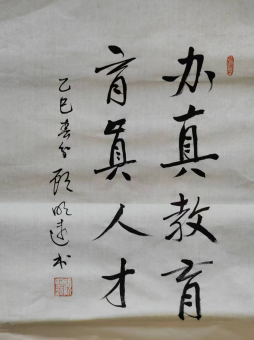 办真教育
育真人才
乙巳春分 顾明远书